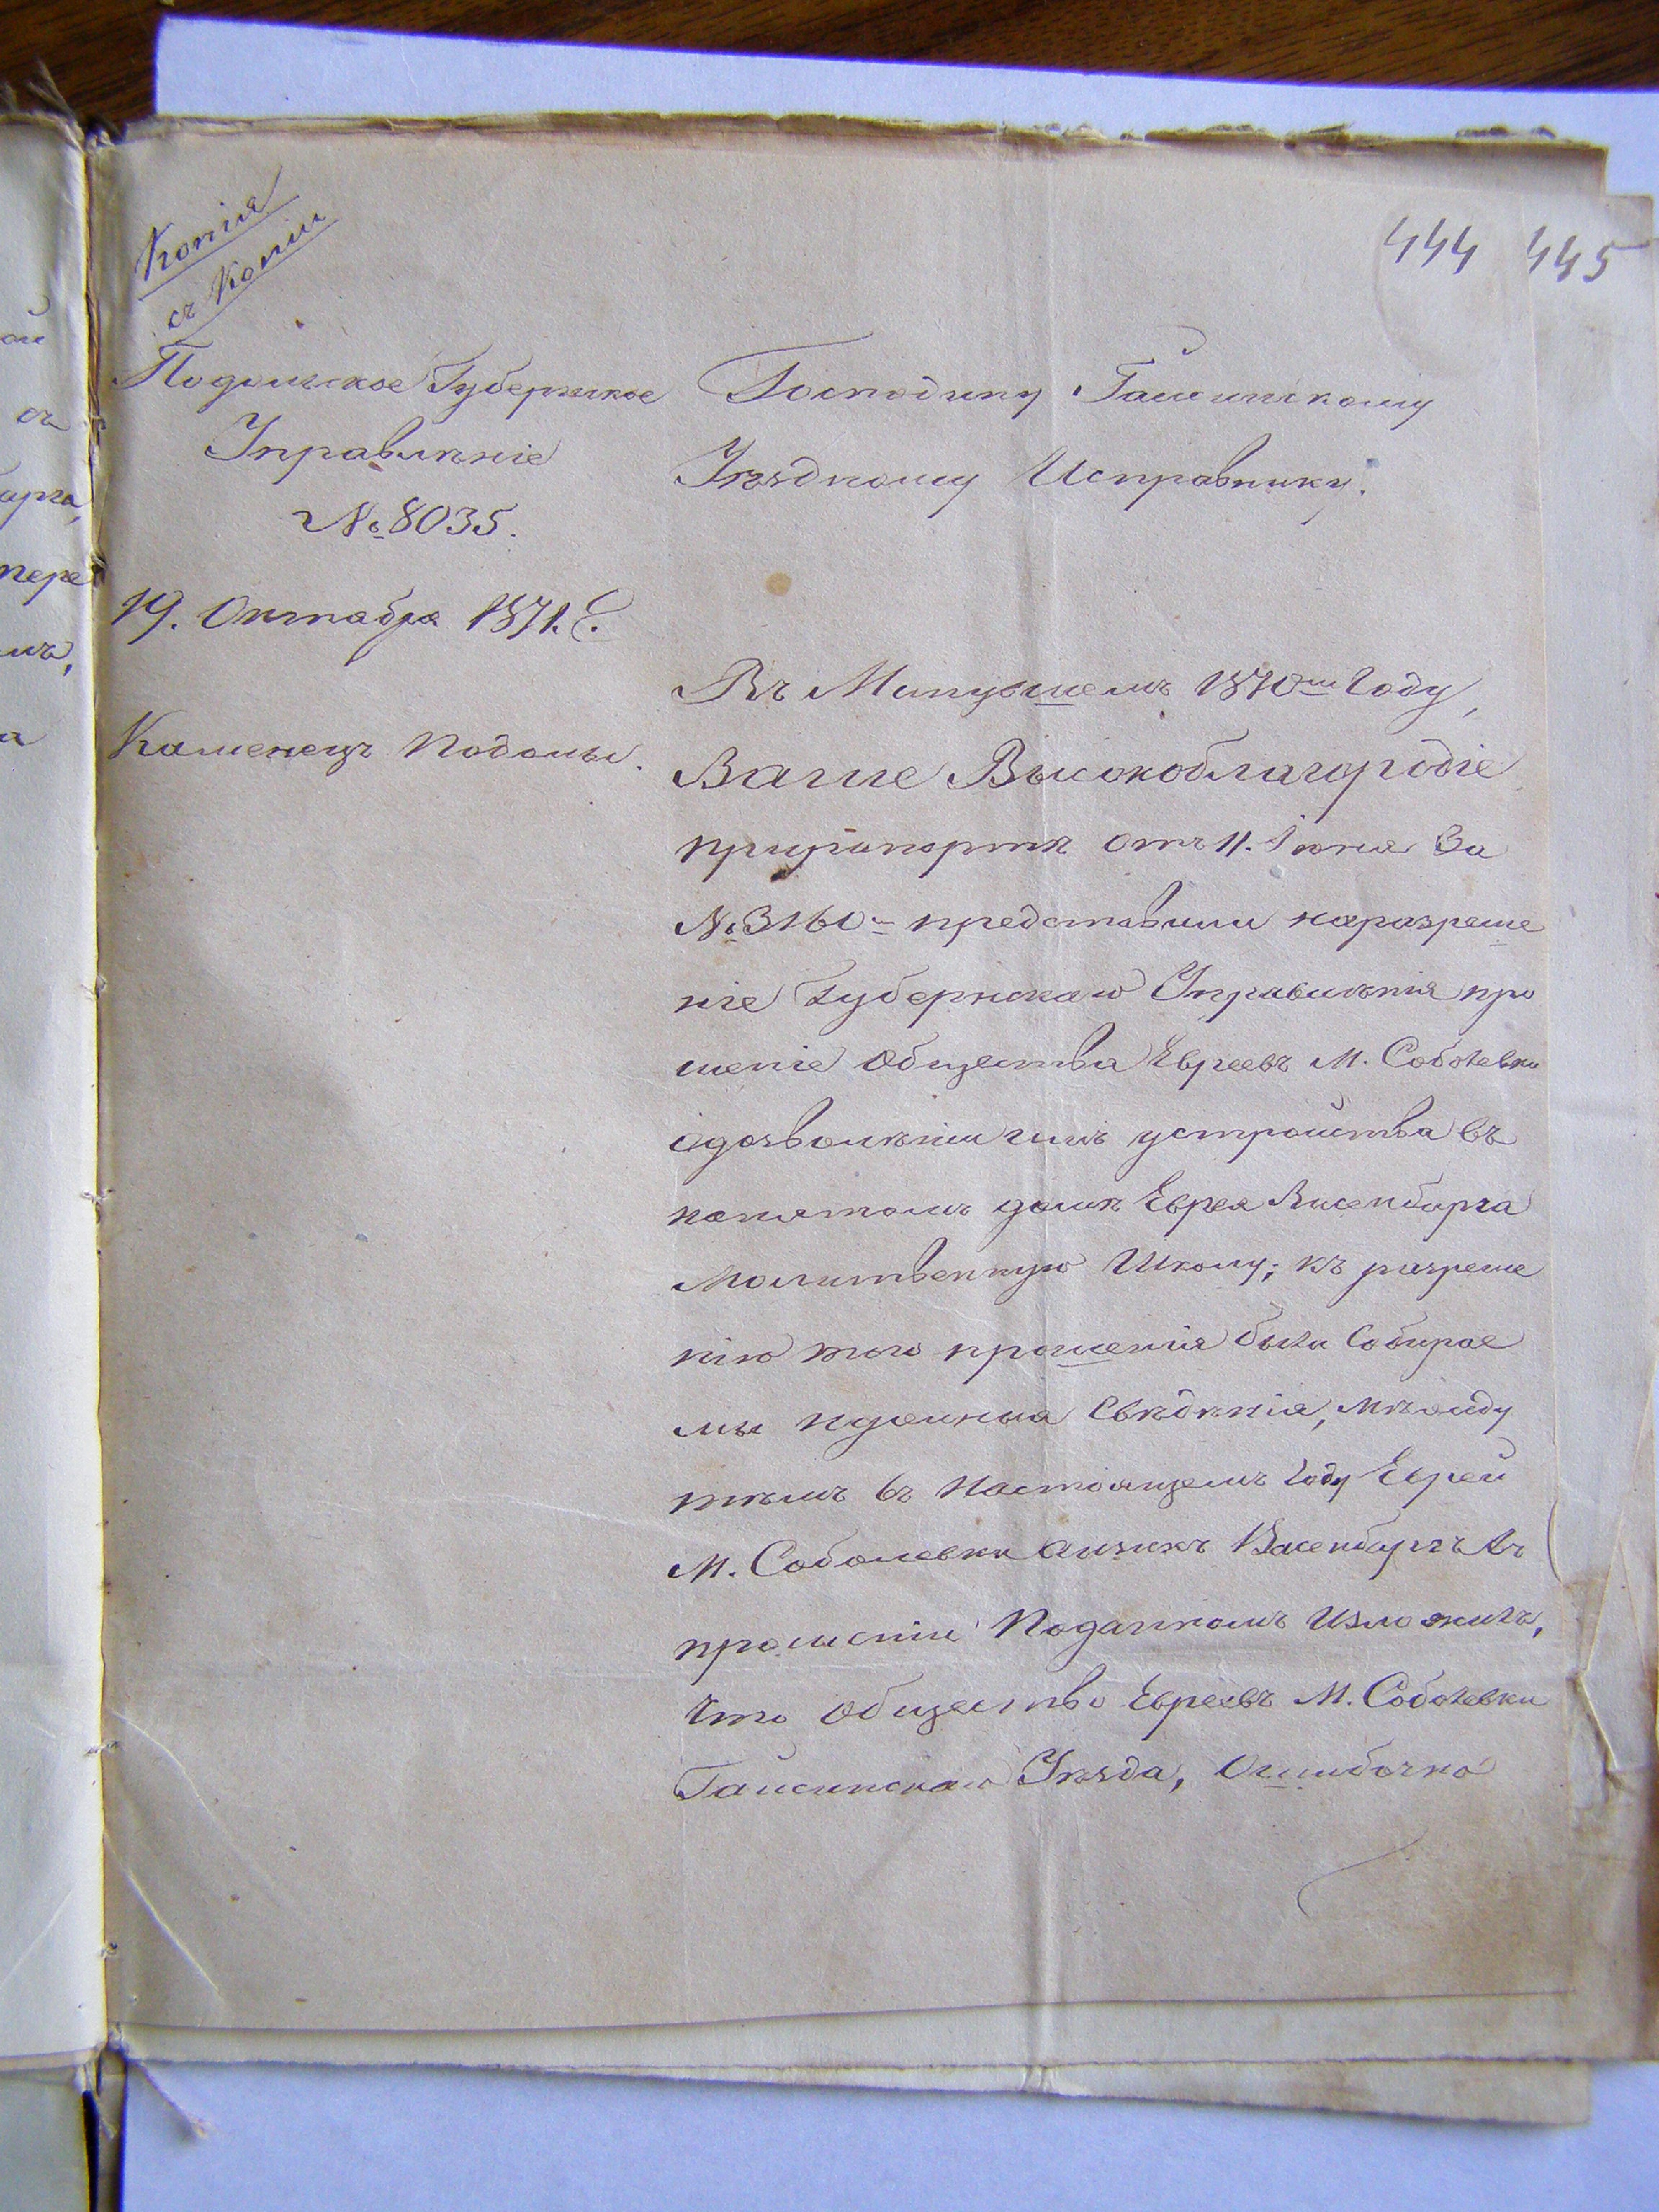 Копія
съ Копіи
444 445
Подольское Губернское
Управленіе
№ 8035.
19. Октября 1871. Г.
Каменецъ Подольс.
Господину Гайсинскому
Уѣздному Исправнику.
Въ Минувшемъ 1870мъ Году,
Ваше Высокоблагородіе
прирапортѣ отъ 11. Іюня За
№ 3160мъ представили наразреше
ніе Губернскаго Управленія про
шеніе Общества Евреевъ М. Соболевки
одозволѣніи имъ устройства въ
нанятомъ домѣ Еврея Висенбарга
Молитвенную Школу; къ разреше
нію того прошенія были Собирае
мы нужныя Свѣдѣнія, мѣжду
тѣмъ въ Настоящемъ Году Еврей
М. Соболевки Аизикъ Васенбаргъ Въ
прошеніи Поданномъ Изложилъ,
Что Общество Евреевъ М. Соболевки
Гайсинскаго Уѣзда, Ошибочно
ой
съ
арга,
пере
мъ,
а